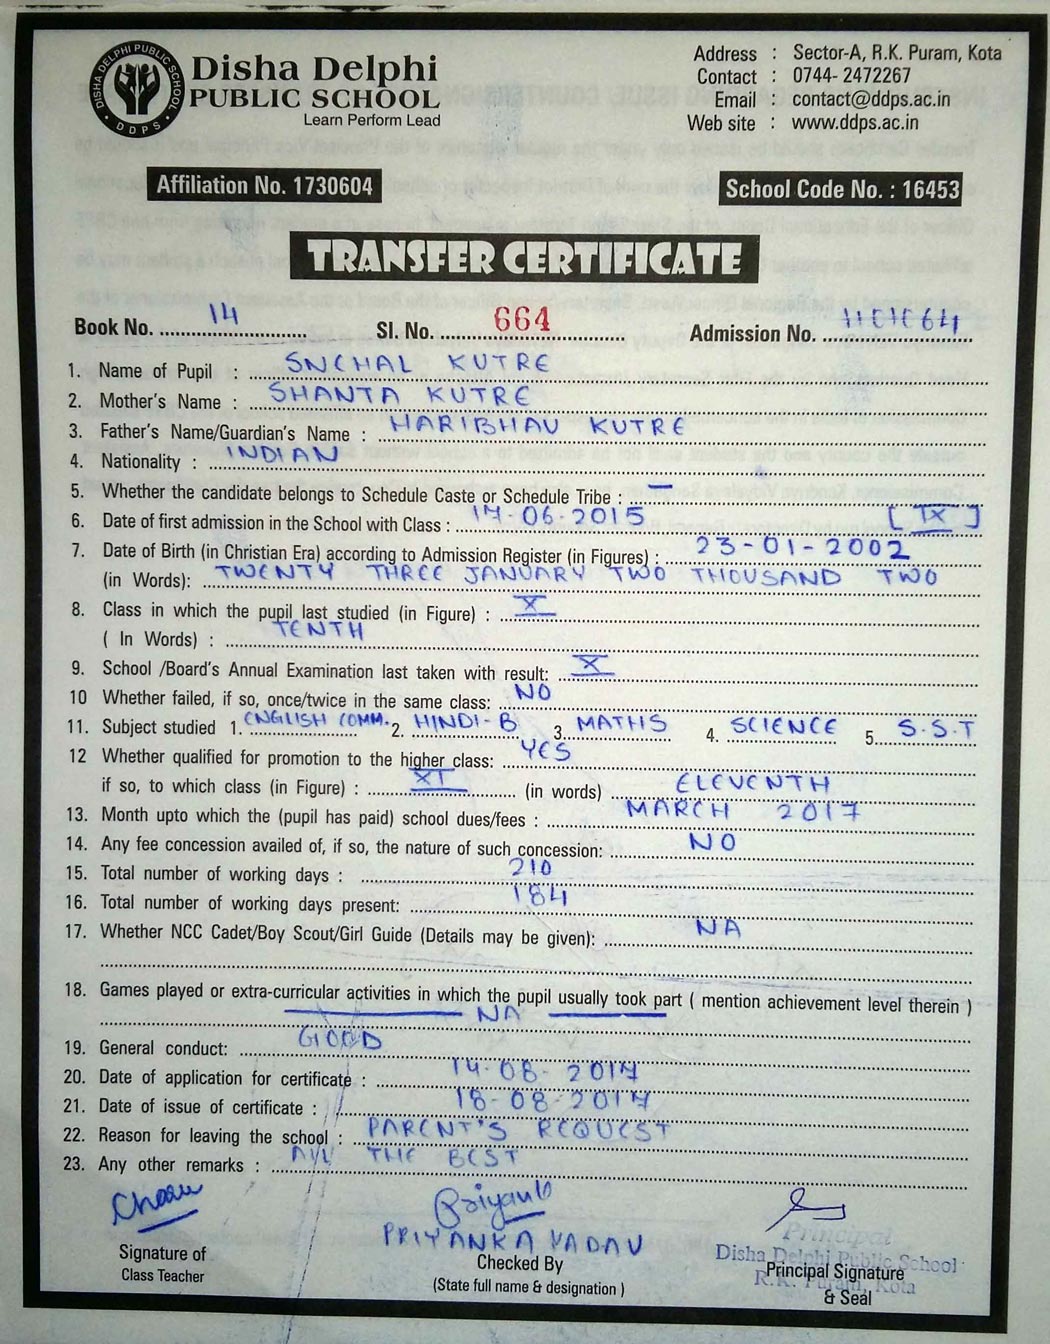 DISHA DELPHI PUBLIC SCHOOL
DDPS
Disha Delphi
PUBLIC SCHOOL
Learn Perform Lead
Address : Sector-A, R.K. Puram, Kota
Contact : 0744- 2472267
Email : contact@ddps.ac.in
Web site : www.ddps.ac.in
Affiliation No. 1730604
School Code No. : 16453
TRANSFER CERTIFICATE
Book No. 14 Sl. No. 664 Admission No.
1. Name of Pupil : SNEHAL KUTRE
2. Mother's Name : SHANTA KUTRE
3. Father's Name/Guardian's Name : HARIBHAU KUTRE
4. Nationality : INDIAN
5. Whether the candidate belongs to Schedule Caste or Schedule Tribe : —
6. Date of first admission in the School with Class : 14-06-2015 [IX]
7. Date of Birth (in Christian Era) according to Admission Register (in Figures) : 23-01-2002
(in Words): TWENTY THREE JANUARY TWO THOUSAND TWO
8. Class in which the pupil last studied (in Figure) : X
( In Words) : TENTH
9. School /Board's Annual Examination last taken with result: X
10 Whether failed, if so, once/twice in the same class: NO
11. Subject studied 1. ENGLISH COMM. 2. HINDI-B 3. MATHS 4. SCIENCE 5. S.S.T
12 Whether qualified for promotion to the higher class: YES
if so, to which class (in Figure) : XI (in words) ELEVENTH
13. Month upto which the (pupil has paid) school dues/fees : MARCH 2017
14. Any fee concession availed of, if so, the nature of such concession: NO
15. Total number of working days : 210
16. Total number of working days present: 184
17. Whether NCC Cadet/Boy Scout/Girl Guide (Details may be given): NA
18. Games played or extra-curricular activities in which the pupil usually took part ( mention achievement level therein )
NA
19. General conduct: GOOD
20. Date of application for certificate : 14-08-2017
21. Date of issue of certificate : 18-08-2017
22. Reason for leaving the school : PARENT'S REQUEST
23. Any other remarks : All THE BEST
Priyanka
PRIYANKA YADAV
Principal
Disha Delphi Public School
R.K. Puram, Kota
Signature of
Class Teacher
Checked By
(State full name & designation )
Principal Signature
& Seal